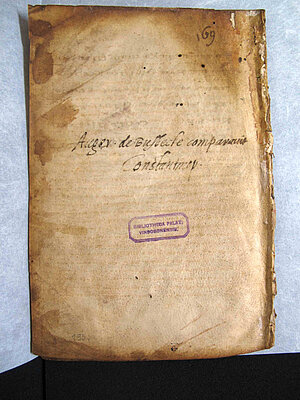 169
Auger de Busbecke comparavit
Constantinop.
BIBLIOTHECA PALAT.
VINDOBONENSIS.